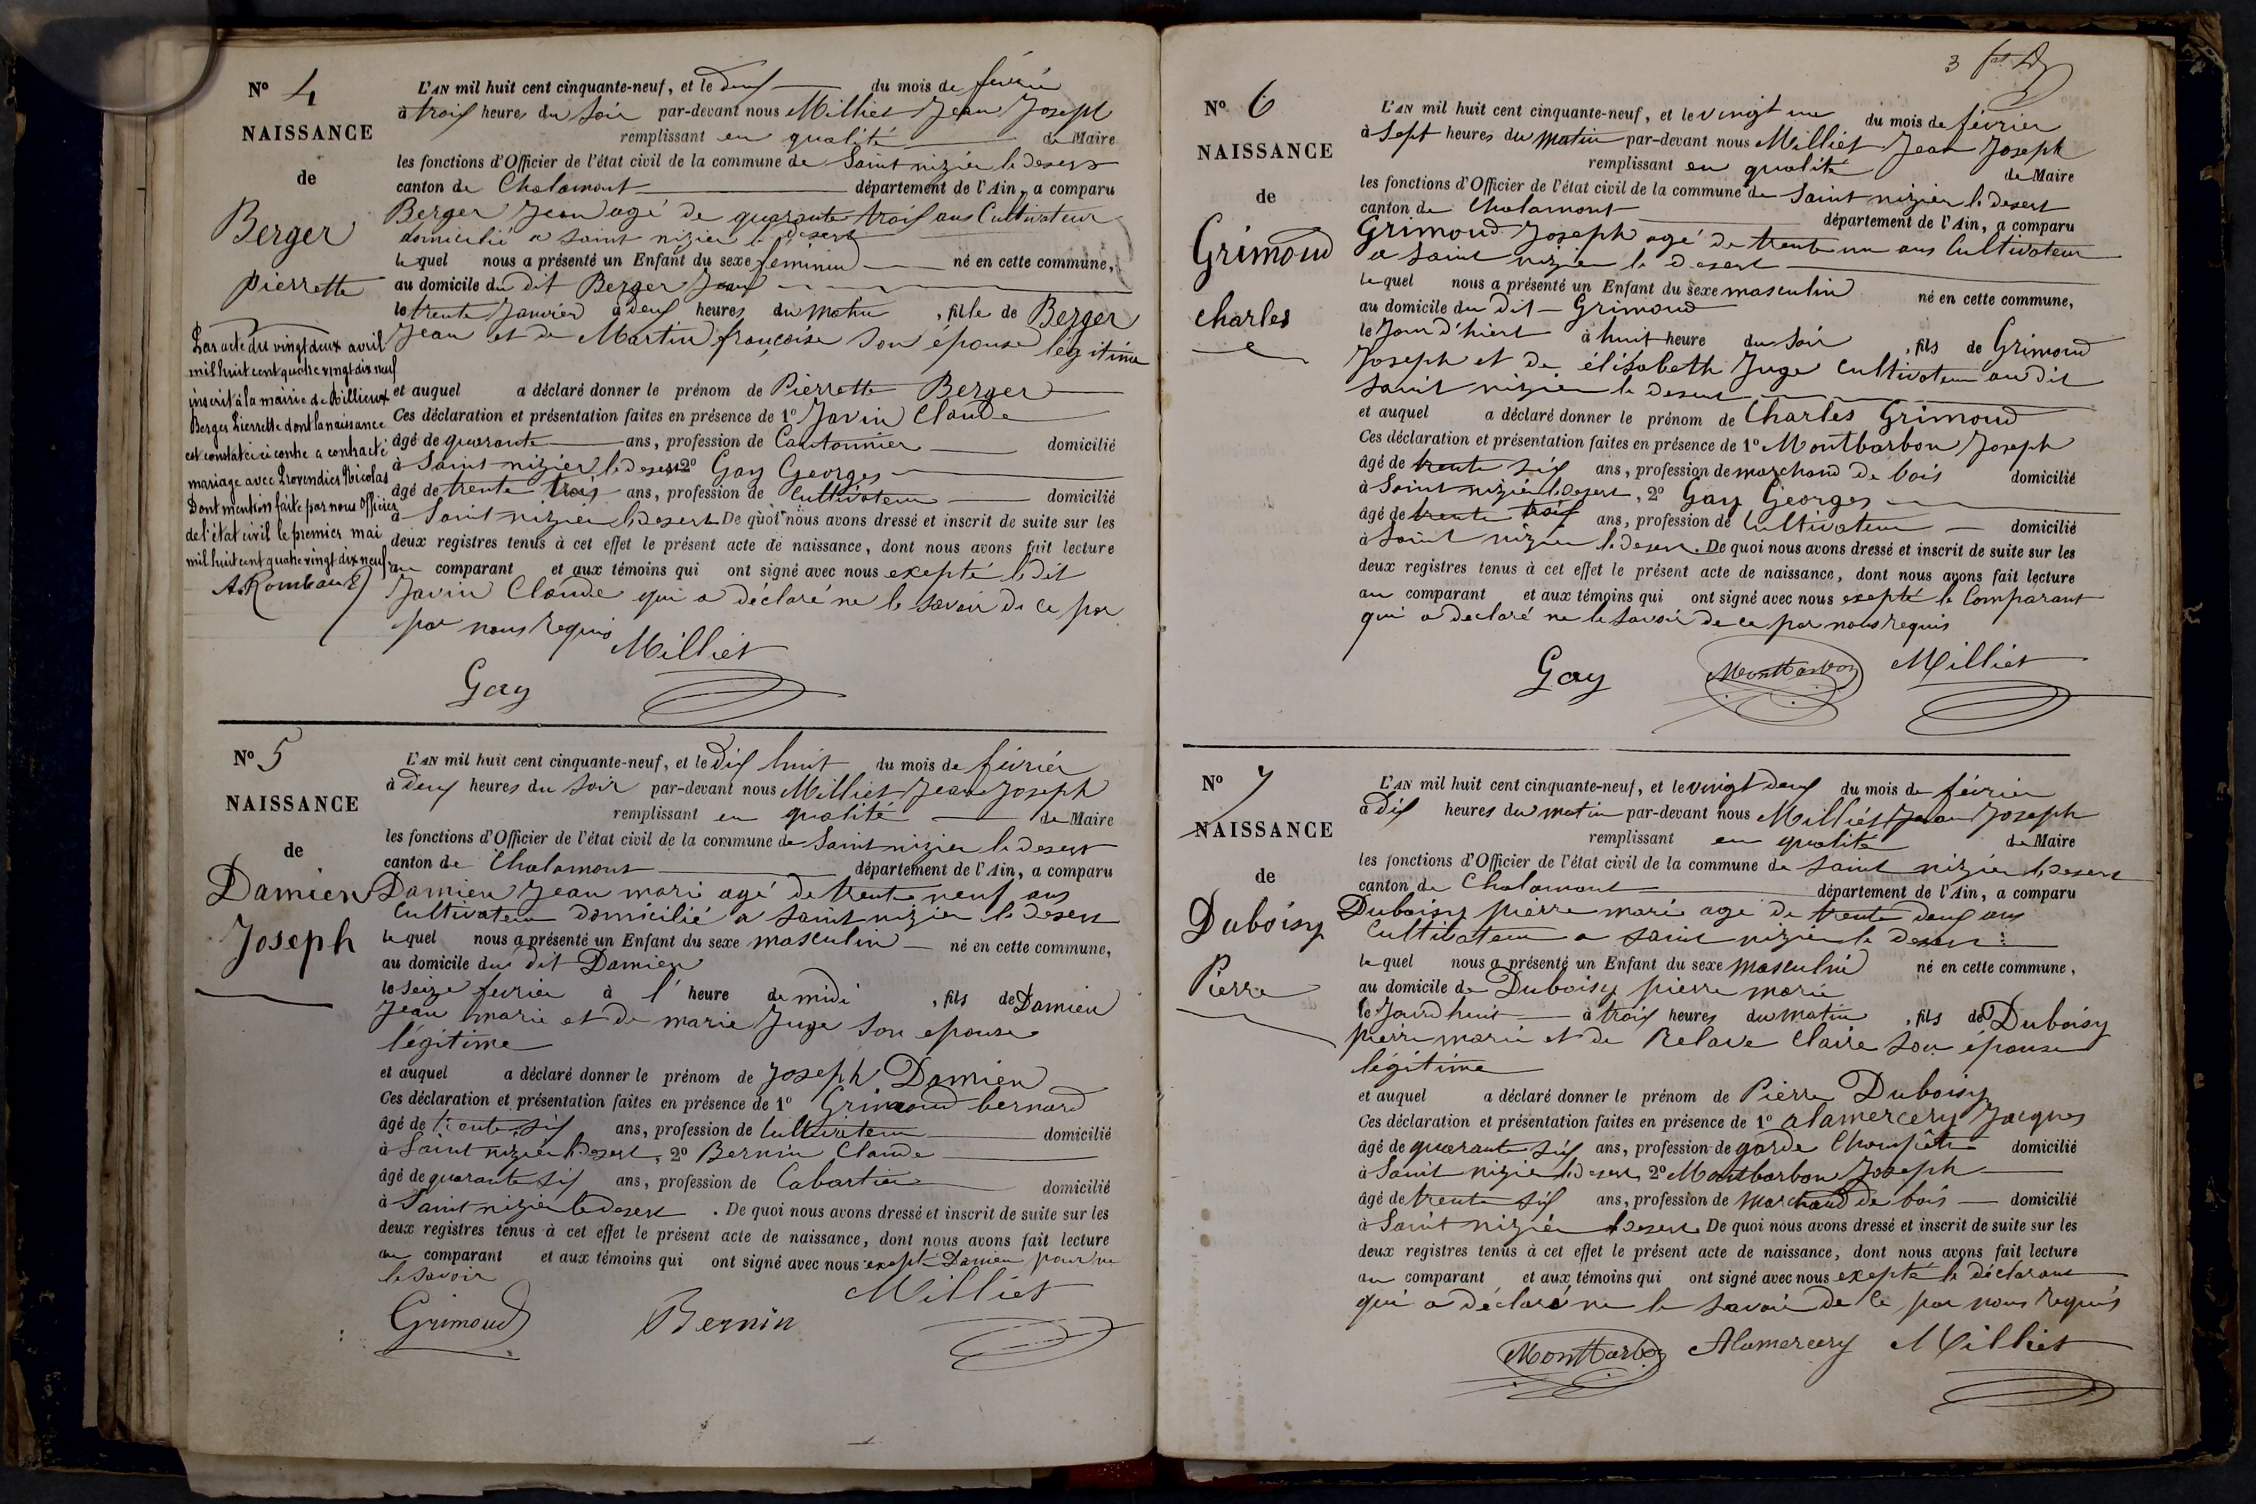 Nº 4
NAISSANCE
de
Berger
pierrette
Par acte du vingt deux avril
mil huit cent quatre vingt dix neuf
inscrit à la mairie de Rillieux
Berger Pierrette dont la naissance
est constatée ci contre a contracté
mariage avec Provendier Nicolas
Dont mention faite par nous Officier
de l'état civil le premier mai
mil huit cent quatre vingt dix neuf.
L'AN mil huit cent cinquante-neuf, et le deux du mois de février
à trois heures du soir par-devant nous Milliet Jean Joseph
remplissant en qualité de Maire
les fonctions d'Officier de l'état civil de la commune de Saint nizier le desert
canton de Chalamont département de l'Ain, a comparu
Berger Jean agé de quarante trois ans Cultivateur
domicilié a saint nizier le desert
le quel nous a présenté un Enfant du sexe feminin né en cette commune,
au domicile du dit Berger Jean
le trente Janvier à deux heures du matin, fille de Berger
Jean et de Martin françoise son épouse légitime
et auquel a déclaré donner le prénom de Pierrette Berger
Ces déclaration et présentation faites en présence de 1º Javin Claude
âgé de quarante ans, profession de Cantonnier domicilié
à Saint nizier le desert 2º Gay Georges
âgé de trente trois ans, profession de Cultivateur domicilié
à Saint nizier le desert De quoi nous avons dressé et inscrit de suite sur les
deux registres tenus à cet effet le présent acte de naissance, dont nous avons fait lecture
au comparant et aux témoins qui ont signé avec nous exepté le dit
Javin Claude qui a déclaré ne le savoir de ce par
par nous requis Milliet
Gay
Nº 5
NAISSANCE
de
Damien
Joseph
L'AN mil huit cent cinquante-neuf, et le dix huit du mois de février
à deux heures du soir par-devant nous Milliet Jean Joseph
remplissant en qualité de Maire
les fonctions d'Officier de l'état civil de la commune de Saint nizier le desert
canton de Chalamont département de l'Ain, a comparu
Damien Jean marie agé de trente neuf ans
Cultivateur domicilié a saint nizier le desert
le quel nous a présenté un Enfant du sexe masculin né en cette commune,
au domicile du dit Damien
le seize fevrier à l'heure de midi, fils de Damien
Jean marie et de marie Juge son epouse
légitime
et auquel a déclaré donner le prénom de Joseph Damien
Ces déclaration et présentation faites en présence de 1º Grimaud bernard
âgé de trente six ans, profession de Cultivateur domicilié
à Saint nizier le desert, 2º Bernin Claude
âgé de quarante six ans, profession de Cabartier domicilié
à Saint nizier le desert. De quoi nous avons dressé et inscrit de suite sur les
deux registres tenus à cet effet le présent acte de naissance, dont nous avons fait lecture
au comparant et aux témoins qui ont signé avec nous exepté Damien pour ne
le savoir
Milliet
Grimoud Bernin
3
Nº 6
NAISSANCE
de
Grimoud
charles
L'AN mil huit cent cinquante-neuf, et le vingt un du mois de février
à sept heures du matin par-devant nous Milliet Jean Joseph
remplissant en qualité de Maire
les fonctions d'Officier de l'état civil de la commune de Saint nizier le desert
canton de Chalamont département de l'Ain, a comparu
Grimoud Joseph agé de trente un ans Cultivateur
a saint nizier le desert
le quel nous a présenté un Enfant du sexe masculin né en cette commune,
au domicile du dit Grimoud
le Jour d'hiert à huit heure du soir, fils de Grimoud
Joseph et de élisabeth Juge Cultivateur au dit
saint nizier le desert
et auquel a déclaré donner le prénom de Charles Grimoud
Ces déclaration et présentation faites en présence de 1º Montbarbon Joseph
âgé de trente six ans, profession de marchand de bois domicilié
à Saint nizier le desert, 2º Gay Georges
âgé de trente trois ans, profession de Cultivateur domicilié
à Saint nizier le desert. De quoi nous avons dressé et inscrit de suite sur les
deux registres tenus à cet effet le présent acte de naissance, dont nous avons fait lecture
au comparant et aux témoins qui ont signé avec nous exepté le Comparant
qui a declaré ne le savoir de ce par nous requis
Gay Montbarbon Milliet
Nº 7
NAISSANCE
de
Duboisy
Pierre
L'AN mil huit cent cinquante-neuf, et le vingt deux du mois de février
à dix heures du matin par-devant nous Milliet Jean Joseph
remplissant en qualité de Maire
les fonctions d'Officier de l'état civil de la commune de saint nizier le desert
canton de Chalamont département de l'Ain, a comparu
Duboisy pierre marie agé de trente deux ans
Cultivateur a saint nizier le desert
le quel nous a présenté un Enfant du sexe masculin né en cette commune,
au domicile de Duboisy pierre marie
le Jourdhuit à trois heures du matin, fils de Duboisy
pierre marie et de Relave Claire son épouse
légitime
et auquel a déclaré donner le prénom de Pierre Duboisy
Ces déclaration et présentation faites en présence de 1º alamercery Jacques
âgé de quarante six ans, profession de garde Champêtre domicilié
à Saint nizier le desert, 2º Montbarbon Joseph
âgé de trente six ans, profession de marchand de bois domicilié
à Saint nizier le desert De quoi nous avons dressé et inscrit de suite sur les
deux registres tenus à cet effet le présent acte de naissance, dont nous avons fait lecture
au comparant et aux témoins qui ont signé avec nous exepté le déclarant
qui a déclaré ne le savoir de ce par nous requis
Montbarbon Alamercery Milliet